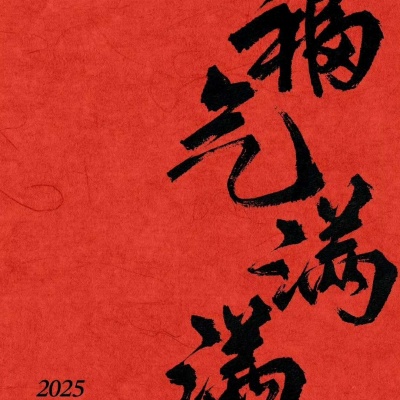 福气满满
2025